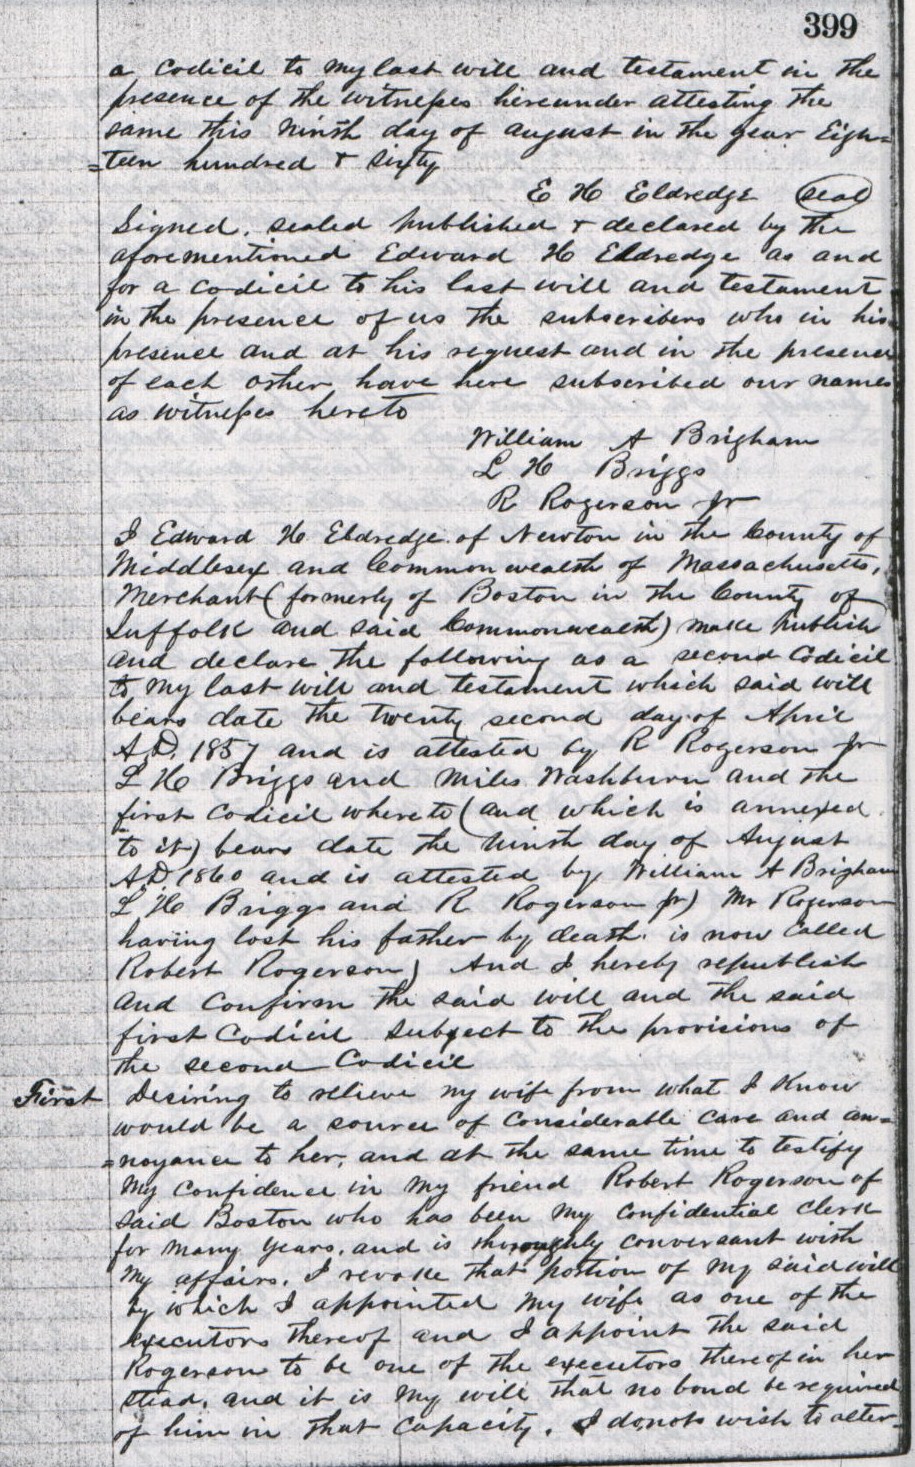 399
a Codicil to my last will and testament in the
presence of the witnesses hereunder attesting the
same this ninth day of August in the year Eigh=
=teen hundred & sixty
E H Eldredge seal
Signed, sealed published & declared by the
aforementioned Edward H Eldredge as and
for a codicil to his last will and testament
in the presence of us the subscribers who in his
presence and at his request and in the presence
of each other have here subscribed our names
as witnesses hereto
William A Brigham
L H Briggs
R Rogerson Jr
I Edward H. Eldredge of Newton in the County of
Middlesex and Commonwealth of Massachusetts,
Merchant (formerly of Boston in the County of
Suffolk and said Commonwealth) make publish
and declare the following as a second Codicil
to my last will and testament which said will
bears date the twenty second day of April
A.D. 1857 and is attested by R Rogerson Jr
L H Briggs and Miles Washburn and the
first Codicil whereto (and which is annexed
to it) bears date the ninth day of August
A.D. 1860 and is attested by William A Brigham
L H Briggs and R Rogerson Jr) Mr Rogerson
having lost his father by death. is now called
Robert Rogerson) And I hereby republish
and confirm the said will and the said
first Codicil subject to the provisions of
the second Codicil
First Desiring to relieve my wife from what I know
would be a source of considerable care and an=
=noyance to her, and at the same time to testify
my confidence in my friend Robert Rogerson of
said Boston who has been my confidential clerk
for many years, and is thoroughly conversant with
my affairs, I revoke that portion of my said will
by which I appointed my wife as one of the
executors thereof and I appoint the said
Rogerson to be one of the executors thereof in her
stead, and it is my will that no bond be required
of him in that capacity. I do not wish to alter